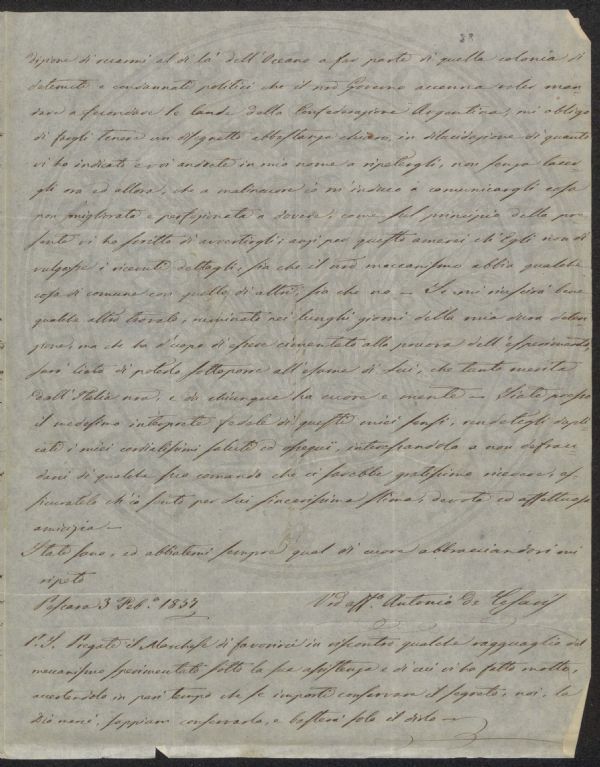 38
dipone di recarmi al di là dell'Oceano a far parte di quella colonia di
detenuti e condannati politici che il nro Governo accenna voler man
dare a fecondare le lande della Confederazione Argentina, mi obbligo
di fargli tenere un disegnetto abbastanza chiaro, in dilucidazione di quanto
vi ho indicato e voi andrete in mio nome a ripetergli, non senza tacer
gli ora ed allora, che a malincuore io m'induco a comunicargli cosa
non migliorata e perfezionata a dovere, come sul principio della pre
sente vi ho scritto di avvertirgli; anzi per questo amerei ch'Egli non di
vulgasse i ricevuti dettagli, sia che il nro meccanismo abbia qualche
cosa di comune con quello di altri, sia che no — Se mi riuscirà bene
qualche altro trovato, ruminato nei lunghi giorni della mia dura deten
zione, ma che ha d'uopo di essere cimentato alla pruova dell'esperimento,
sarò lieto di poterlo sottoporre all'esame di Lui, che tanto merita
dall'Italia nra, e di chiunque ha cuore e mente — Siate presso
il medesimo interprete fedele di questi miei sensi, rendetegli dupli
cati i miei cordialissimi saluti ed ossequi, interessandolo a non defrau
darci di qualche suo comando che ci sarebbe gratissimo ricevere, as
sicuratelo ch'io sento per Lui sincerissima stima, devota ed affettuosa
amicizia —
State sano, ed abbiatemi sempre qual di cuore abbracciandovi mi
ripeto
Pescara 3 Feb.o 1857 Vro aff.o Antonio de Cesaris
P.S. Pregate il Marchese di favorirci in riscontro qualche ragguaglio del
meccanismo sperimentato sotto la sua assistenza e di cui vi ho fatto motto,
accertandolo in pari tempo che se importi conservare il segreto, noi, la
Dio mercé, sappiam conservarlo, e basterà solo il dirlo —